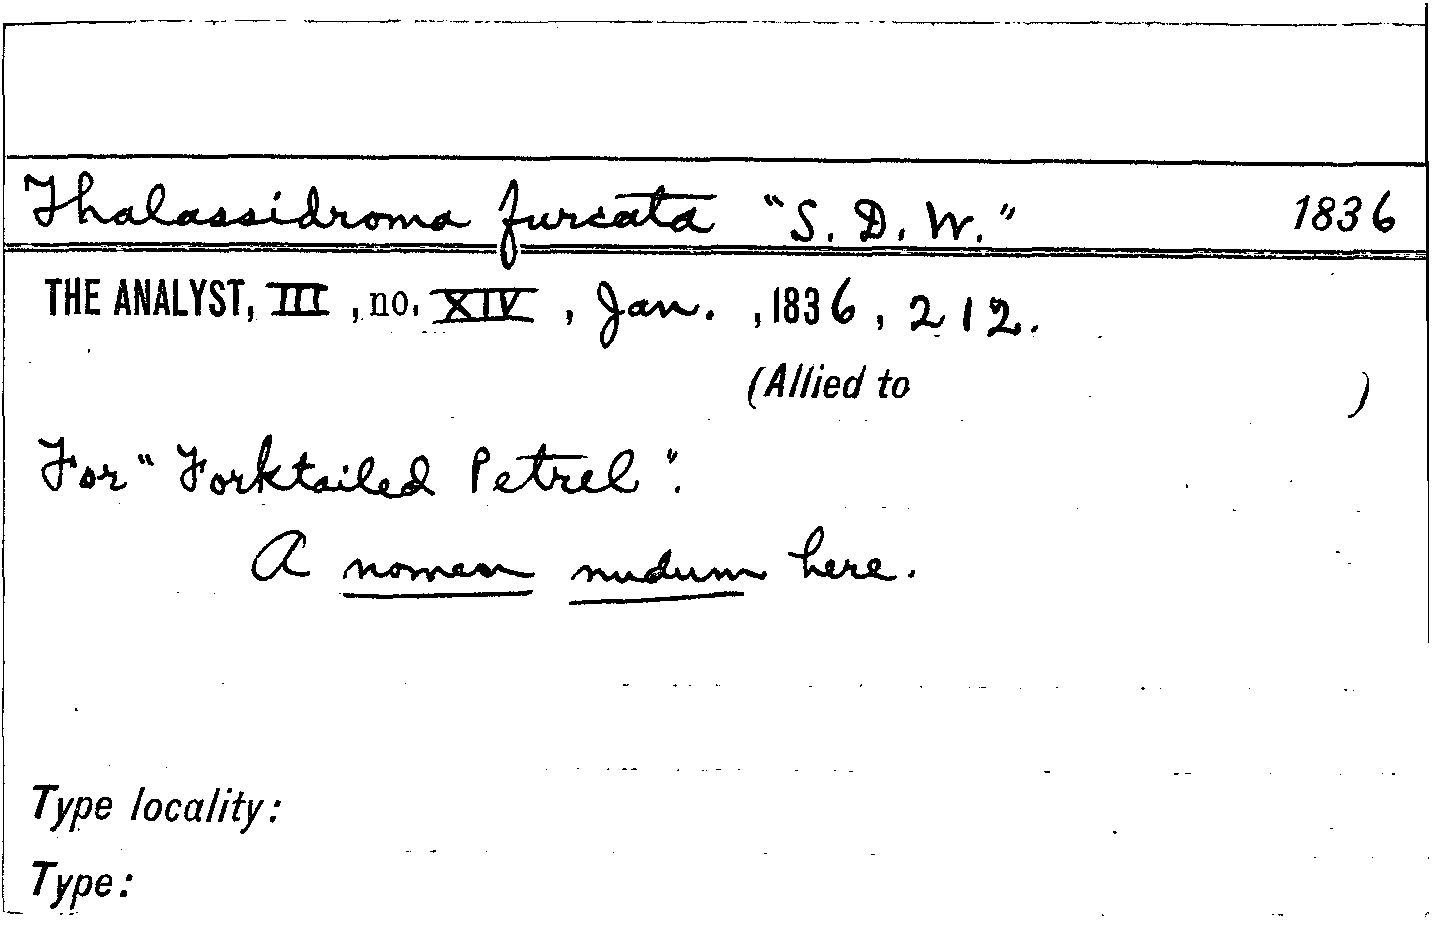 Thalassidroma furcata "S. D. W." 1836
THE ANALYST, III, no. XIV, Jan., 1836, 212.
(Allied to )
For "Forktailed Petrel".
A nomen nudum here.
Type locality:
Type: